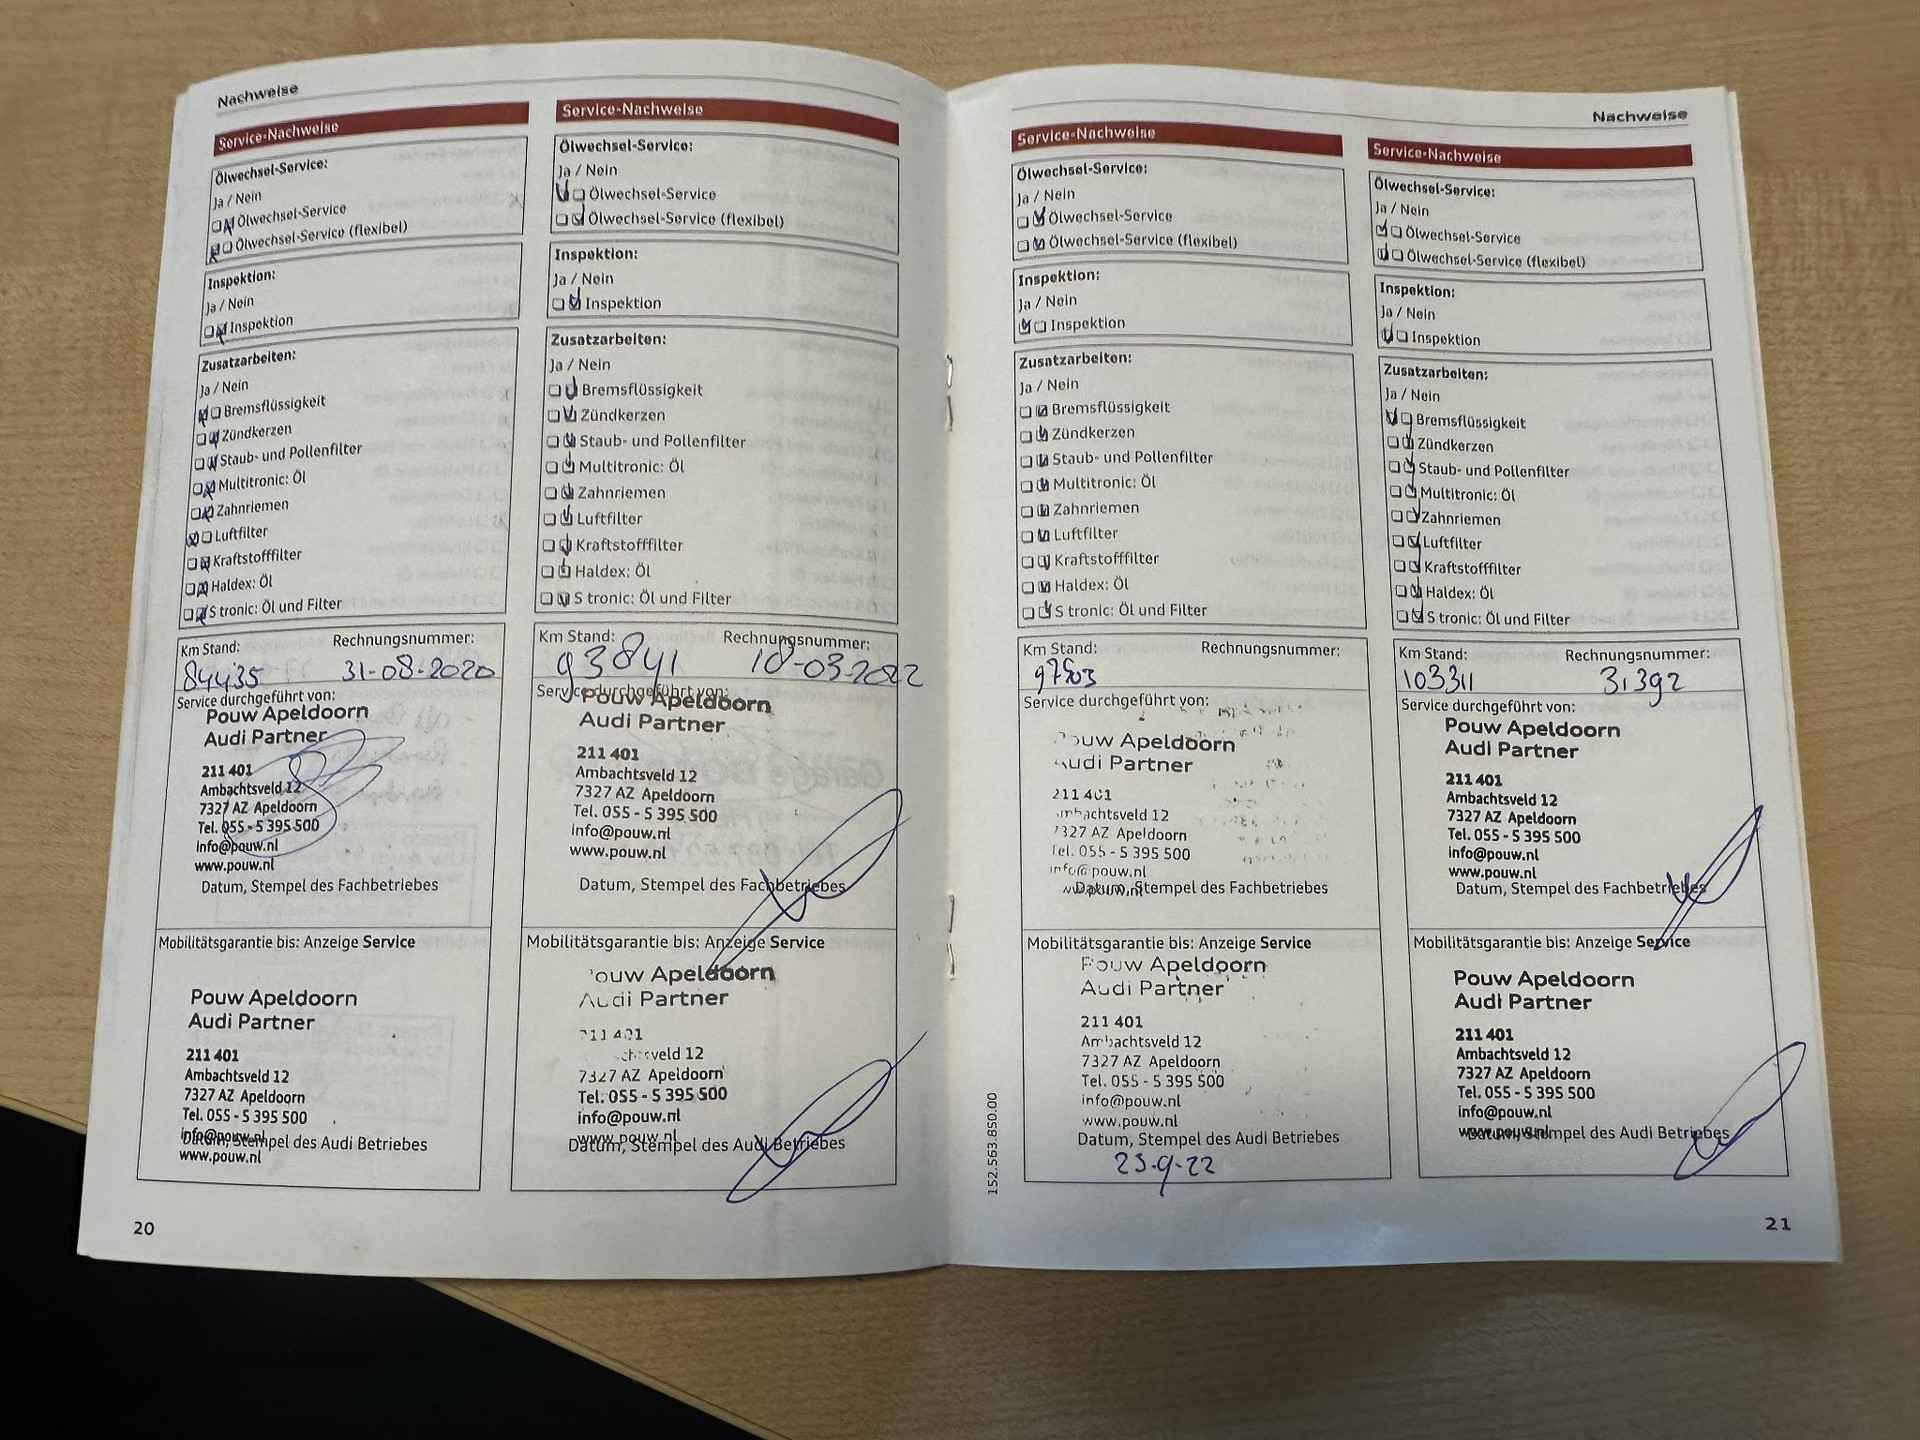 Nachweise
Service-Nachweise
Ölwechsel-Service:
Ja / Nein
Ölwechsel-Service
Ölwechsel-Service (flexibel)
Inspektion:
Ja / Nein
Inspektion
Zusatzarbeiten:
Ja / Nein
Bremsflüssigkeit
Zündkerzen
Staub- und Pollenfilter
Multitronic: Öl
Zahnriemen
Luftfilter
Kraftstofffilter
Haldex: Öl
S tronic: Öl und Filter
Km Stand: Rechnungsnummer:
84435 31-08-2020
Service durchgeführt von:
Pouw Apeldoorn
Audi Partner
211 401
Ambachtsveld 12
7327 AZ Apeldoorn
Tel. 055 - 5 395 500
info@pouw.nl
www.pouw.nl
Datum, Stempel des Fachbetriebes
Mobilitätsgarantie bis: Anzeige Service
Pouw Apeldoorn
Audi Partner
211 401
Ambachtsveld 12
7327 AZ Apeldoorn
Tel. 055 - 5 395 500
info@pouw.nl
Datum, Stempel des Audi Betriebes
www.pouw.nl
20
Service-Nachweise
Ölwechsel-Service:
Ja / Nein
Ölwechsel-Service
Ölwechsel-Service (flexibel)
Inspektion:
Ja / Nein
Inspektion
Zusatzarbeiten:
Ja / Nein
Bremsflüssigkeit
Zündkerzen
Staub- und Pollenfilter
Multitronic: Öl
Zahnriemen
Luftfilter
Kraftstofffilter
Haldex: Öl
S tronic: Öl und Filter
Km Stand: Rechnungsnummer:
93841 10-03-2022
Service durchgeführt von:
Pouw Apeldoorn
Audi Partner
211 401
Ambachtsveld 12
7327 AZ Apeldoorn
Tel. 055 - 5 395 500
info@pouw.nl
www.pouw.nl
Datum, Stempel des Fachbetriebes
Mobilitätsgarantie bis: Anzeige Service
Pouw Apeldoorn
Audi Partner
211 401
Ambachtsveld 12
7327 AZ Apeldoorn
Tel. 055 - 5 395 500
info@pouw.nl
www.pouw.nl
Datum, Stempel des Audi Betriebes
Nachweise
Service-Nachweise
Ölwechsel-Service:
Ja / Nein
Ölwechsel-Service
Ölwechsel-Service (flexibel)
Inspektion:
Ja / Nein
Inspektion
Zusatzarbeiten:
Ja / Nein
Bremsflüssigkeit
Zündkerzen
Staub- und Pollenfilter
Multitronic: Öl
Zahnriemen
Luftfilter
Kraftstofffilter
Haldex: Öl
S tronic: Öl und Filter
Km Stand: Rechnungsnummer:
Service durchgeführt von:
Pouw Apeldoorn
Audi Partner
211 401
Ambachtsveld 12
7327 AZ Apeldoorn
Tel. 055 - 5 395 500
info@pouw.nl
www.pouw.nl
Datum, Stempel des Fachbetriebes
Mobilitätsgarantie bis: Anzeige Service
Pouw Apeldoorn
Audi Partner
211 401
Ambachtsveld 12
7327 AZ Apeldoorn
Tel. 055 - 5 395 500
info@pouw.nl
www.pouw.nl
Datum, Stempel des Audi Betriebes
23-9-22
152.563.850.00
Service-Nachweise
Ölwechsel-Service:
Ja / Nein
Ölwechsel-Service
Ölwechsel-Service (flexibel)
Inspektion:
Ja / Nein
Inspektion
Zusatzarbeiten:
Ja / Nein
Bremsflüssigkeit
Zündkerzen
Staub- und Pollenfilter
Multitronic: Öl
Zahnriemen
Luftfilter
Kraftstofffilter
Haldex: Öl
S tronic: Öl und Filter
Km Stand: Rechnungsnummer:
103311 31392
Service durchgeführt von:
Pouw Apeldoorn
Audi Partner
211 401
Ambachtsveld 12
7327 AZ Apeldoorn
Tel. 055 - 5 395 500
info@pouw.nl
www.pouw.nl
Datum, Stempel des Fachbetriebes
Mobilitätsgarantie bis: Anzeige Service
Pouw Apeldoorn
Audi Partner
211 401
Ambachtsveld 12
7327 AZ Apeldoorn
Tel. 055 - 5 395 500
info@pouw.nl
www.pouw.nl
Datum, Stempel des Audi Betriebes
21